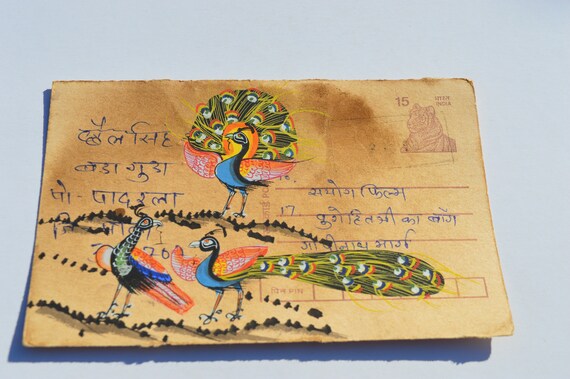 15 भारत
INDIA
छैलसिंह
बडा गुडा
पो - पादरला
सयोग फिल्म
17 पुरोहितजी का बाग
गोपीनाथ मार्ग
पिन कोड